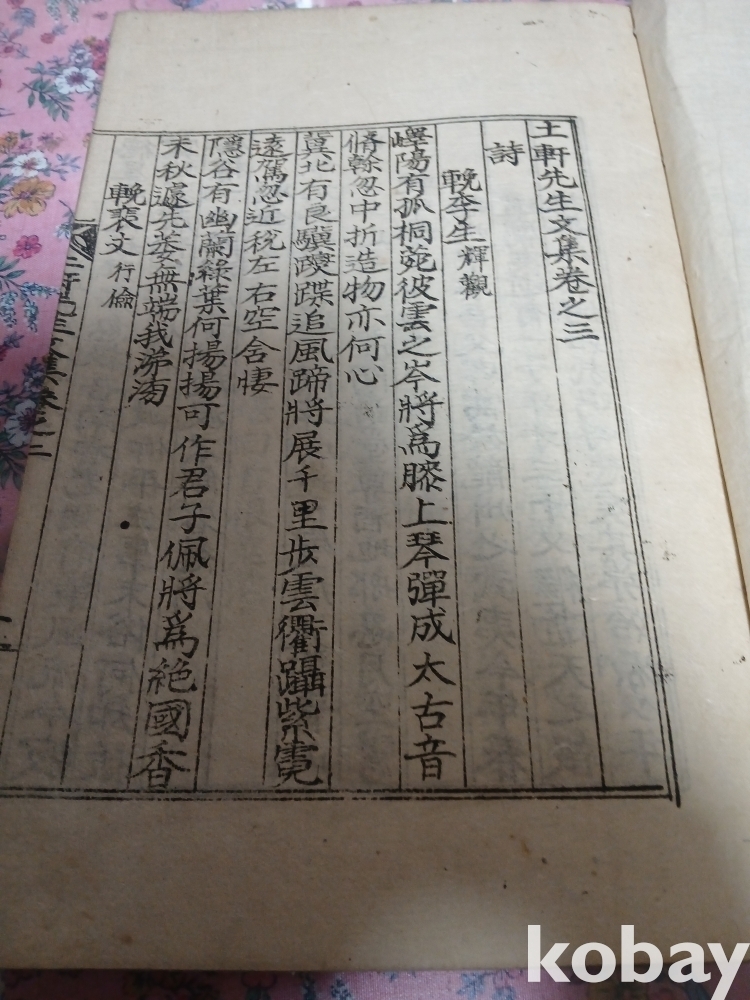 土軒先生文集卷之三
詩
輓李生輝觀
嶧陽有孤桐菀彼雲之岑將爲膝上琴彈成太古音
脩幹忽中折造物亦何心
冀北有良驥躞蹀追風蹄將展千里步雲衢躡紫霓
遠駕忽近稅左右空含悽
隱谷有幽蘭綠葉何揚揚可作君子佩將爲絶國香
未秋遽先萎無端我涕滂
輓裵丈行儉
土軒先生文集卷之三
kobay